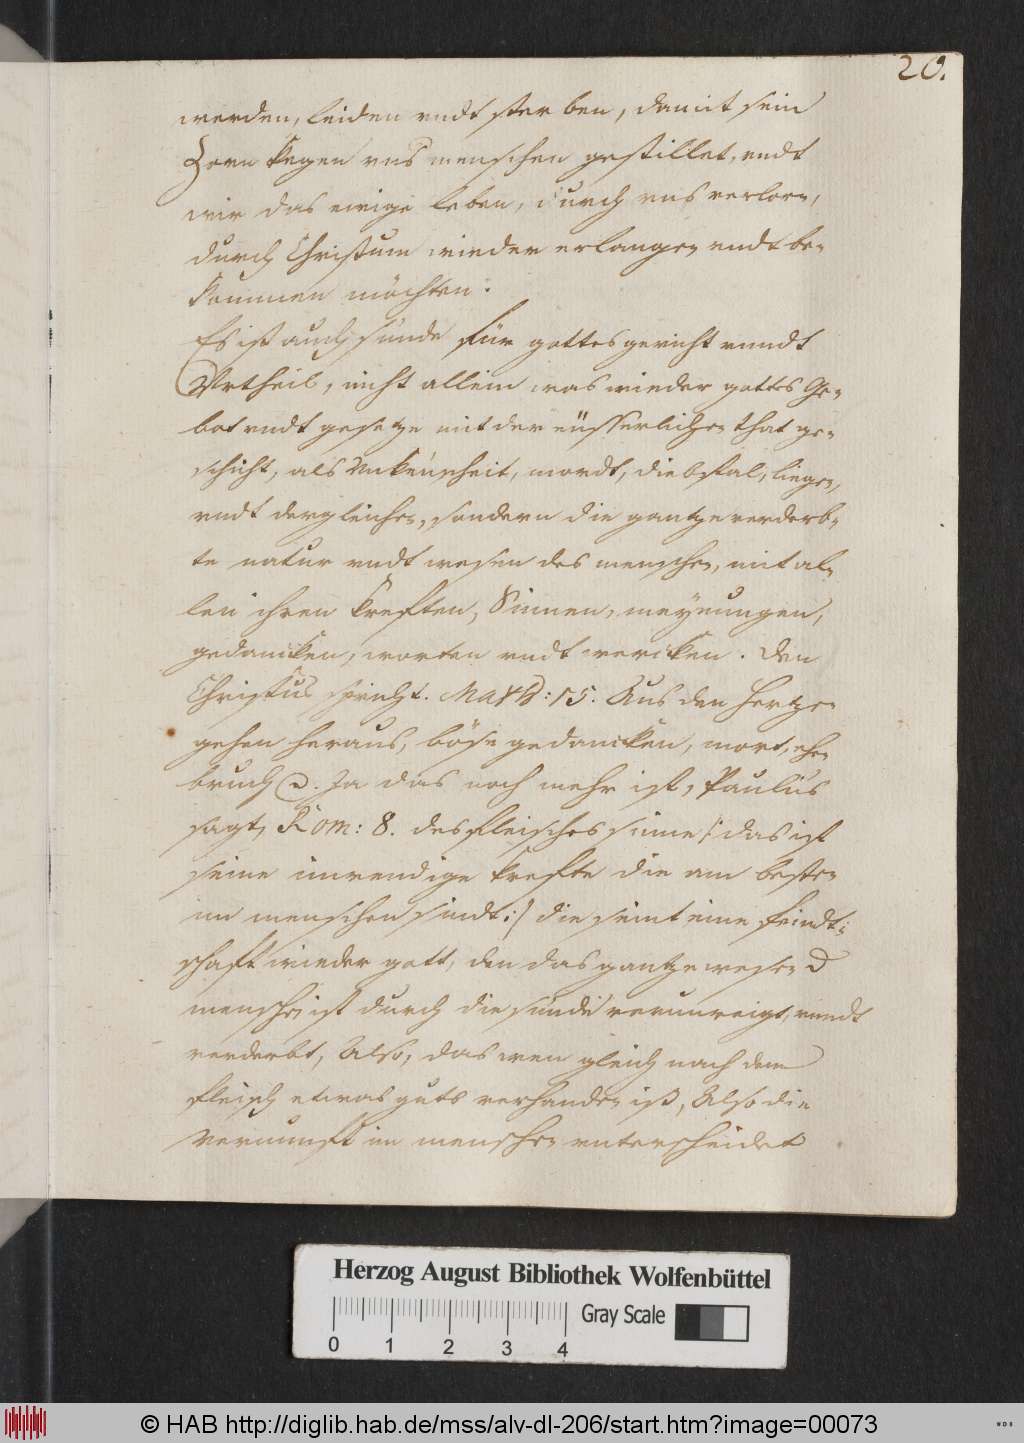 20.
werden, leiden vndt sterben, damit sein
Zorn kegen vns menschen gestillet, vndt
wir das ewige leben, durch vns verlorn,
durch Christum wieder erlangen vndt be-
kommen möchten.
Es ist auch sünde für gottes gericht vundt
Vrtheil, nicht allein was wieder gottes Ge-
bot vndt gesetze mit der eüsserlichen that ge-
schicht, als Vnkeuscheit, mordt, diebstal, liegen,
vndt dergleichen, sondern die gantze verderb-
te natur vndt wesen des menschen, mit al-
len ihren kreften, Sinnen, meynungen,
gedancken, worten vndt wercken. Den
Christus spricht. Matth: 15. Aus den hertzen
gehen heraus, böse gedancken, mort, ehe-
bruch. Ja das noch mehr ist, Paulus
sagt, Rom: 8. des fleisches sinne /: das ist
seine inwendige krefte die am besten
im menschen sindt :/ die seint eine feindt-
schaft wieder gott, den das gantze wesen d
menschen ist durch die sünde verunreigt, vundt
verderbt, Also, das wen gleich nach dem
fleisch etwas guts verhanden ist, Also die
Vernunft im menschen vnterscheidet
Herzog August Bibliothek Wolfenbüttel
Gray Scale
0 1 2 3 4
© HAB http://diglib.hab.de/mss/alv-dl-206/start.htm?image=00073